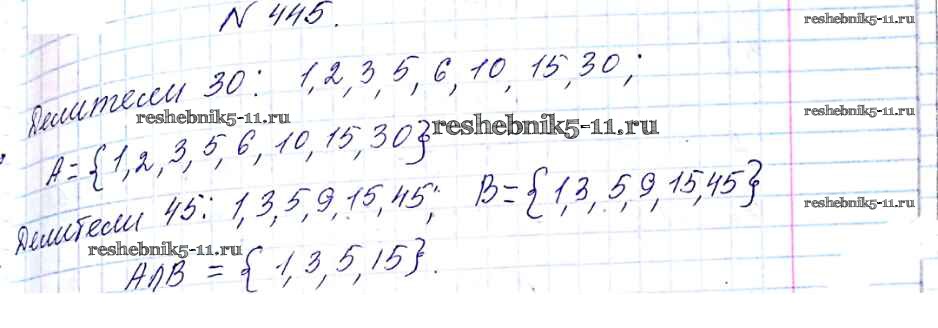 N 445.
reshebnik5-11.ru
Делители 30: 1, 2, 3, 5, 6, 10, 15, 30;
reshebnik5-11.ru
reshebnik5-11.ru
reshebnik5-11.ru
A = {1, 2, 3, 5, 6, 10, 15, 30}
Делители 45: 1, 3, 5, 9, 15, 45; B = {1, 3, 5, 9, 15, 45}
reshebnik5-11.ru
reshebnik5-11.ru
A∩B = {1, 3, 5, 15}.